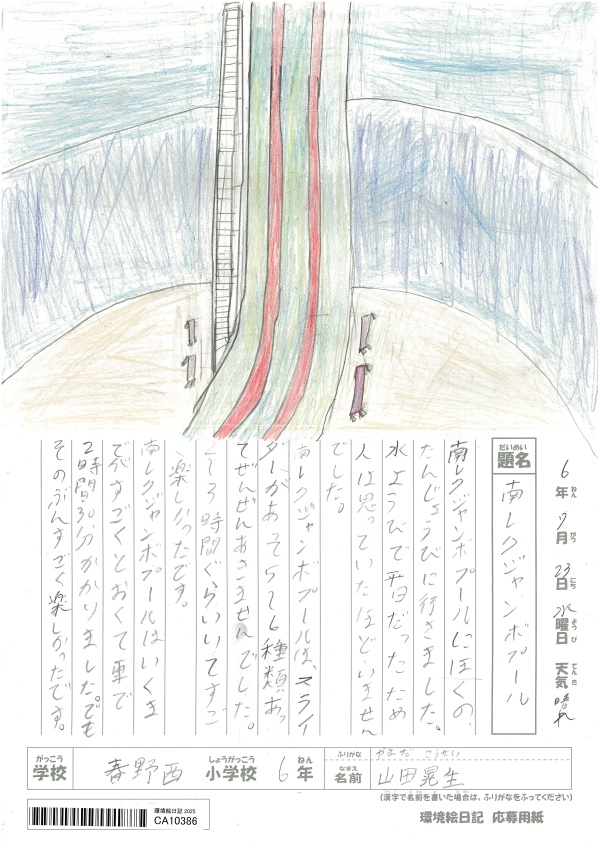 だいめい
題名
南レクジャンボプール
6年 7月 23日 水曜日 天気 晴れ
ねん がつ にち ようび てんき
南レクジャンボプールにぼくの、
たんじょうびに行きました。
水ようびで平日だったため
人は思っていたほどいません
でした。
南レクジャンボプールは、スライ
ダーがあそら〜6種類あっ
てぜんぜんあきませんでした。
して3時間ぐらいいてすご
く楽しかったです。
南レクジャンボプールはいくま
でがすごくとおくて車で
2時間30分かかりました。でも
そのぶんすごく楽しかったです。
がっこう
学校
春野西
しょうがっこう
小学校
6年
ねん
ふりがな
やまだ こうせい
なまえ
名前
山田晃生
(漢字で名前を書いた場合は、ふりがなをふってください)
環境絵日記 応募用紙
環境絵日記 2025
CA10386